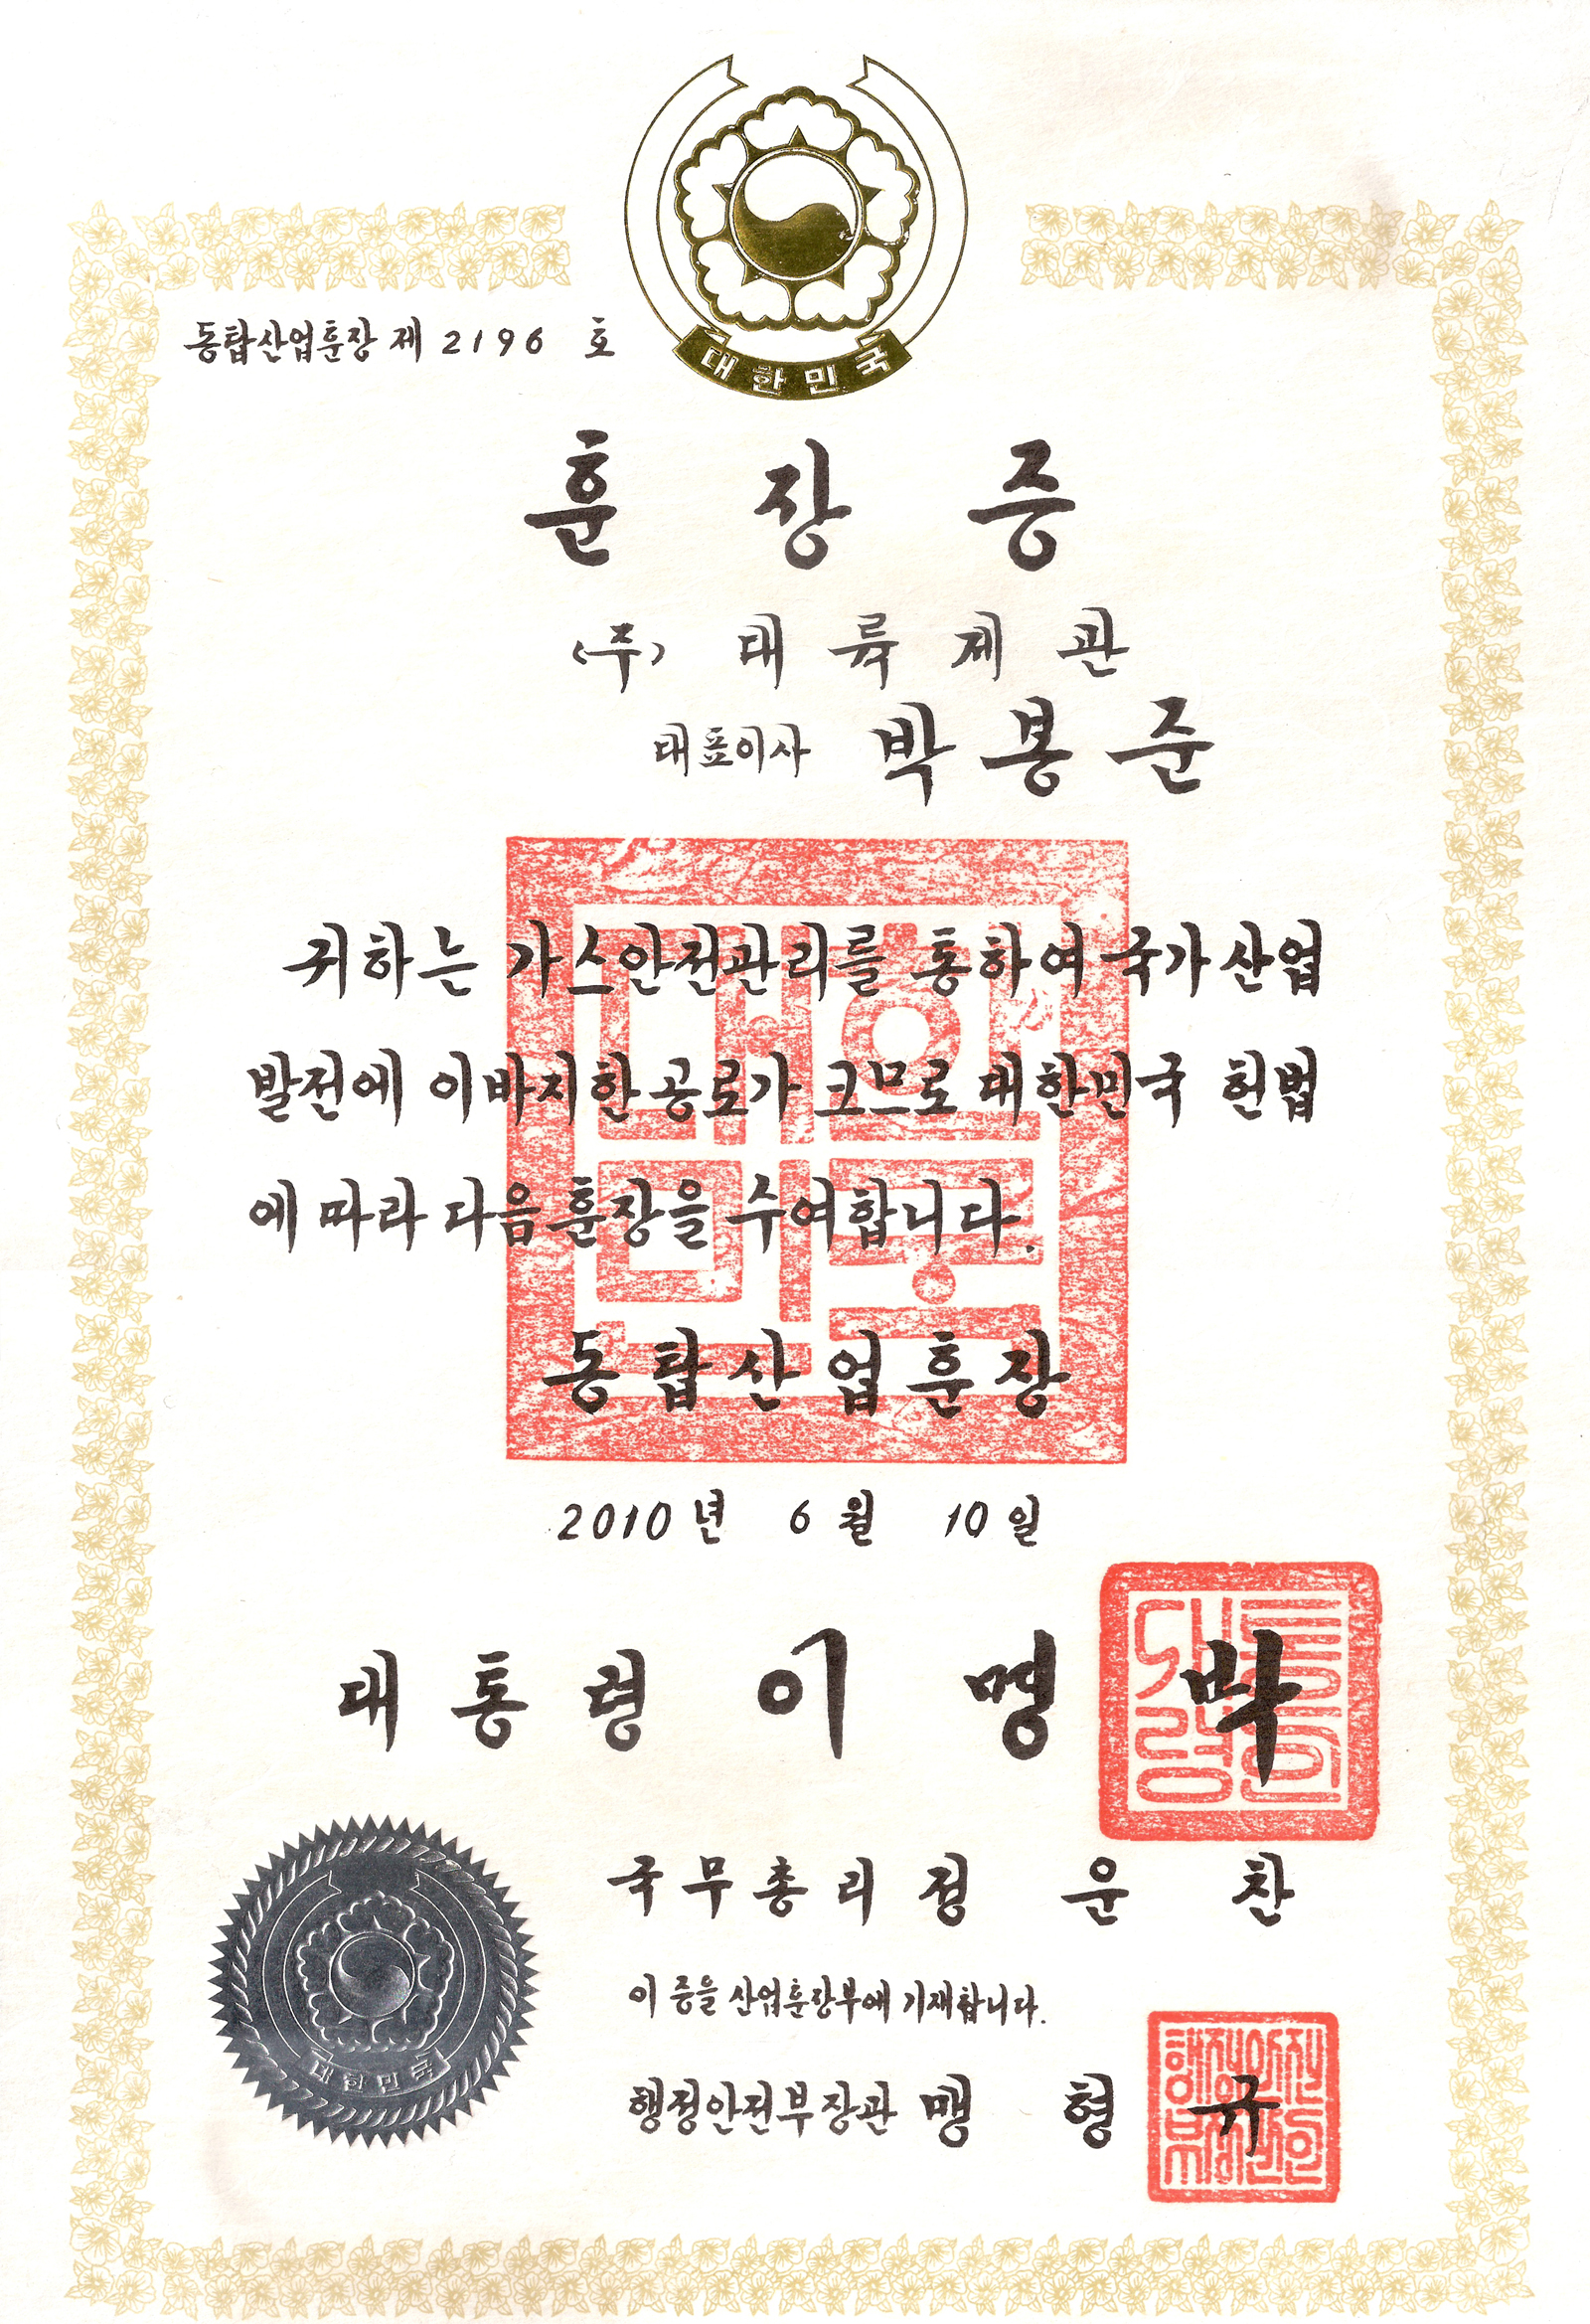 대한민국
동탑산업훈장 제 2196 호
훈장증
(주) 대륙제관
대표이사 박봉준
귀하는 가스안전관리를 통하여 국가산업
발전에 이바지한 공로가 크므로 대한민국 헌법
에 따라 다음 훈장을 수여합니다.
동탑산업훈장
2010년 6월 10일
대통령 이명박
국무총리 정운찬
이 증을 산업훈장부에 기재합니다.
행정안전부장관 맹형규
대한민국